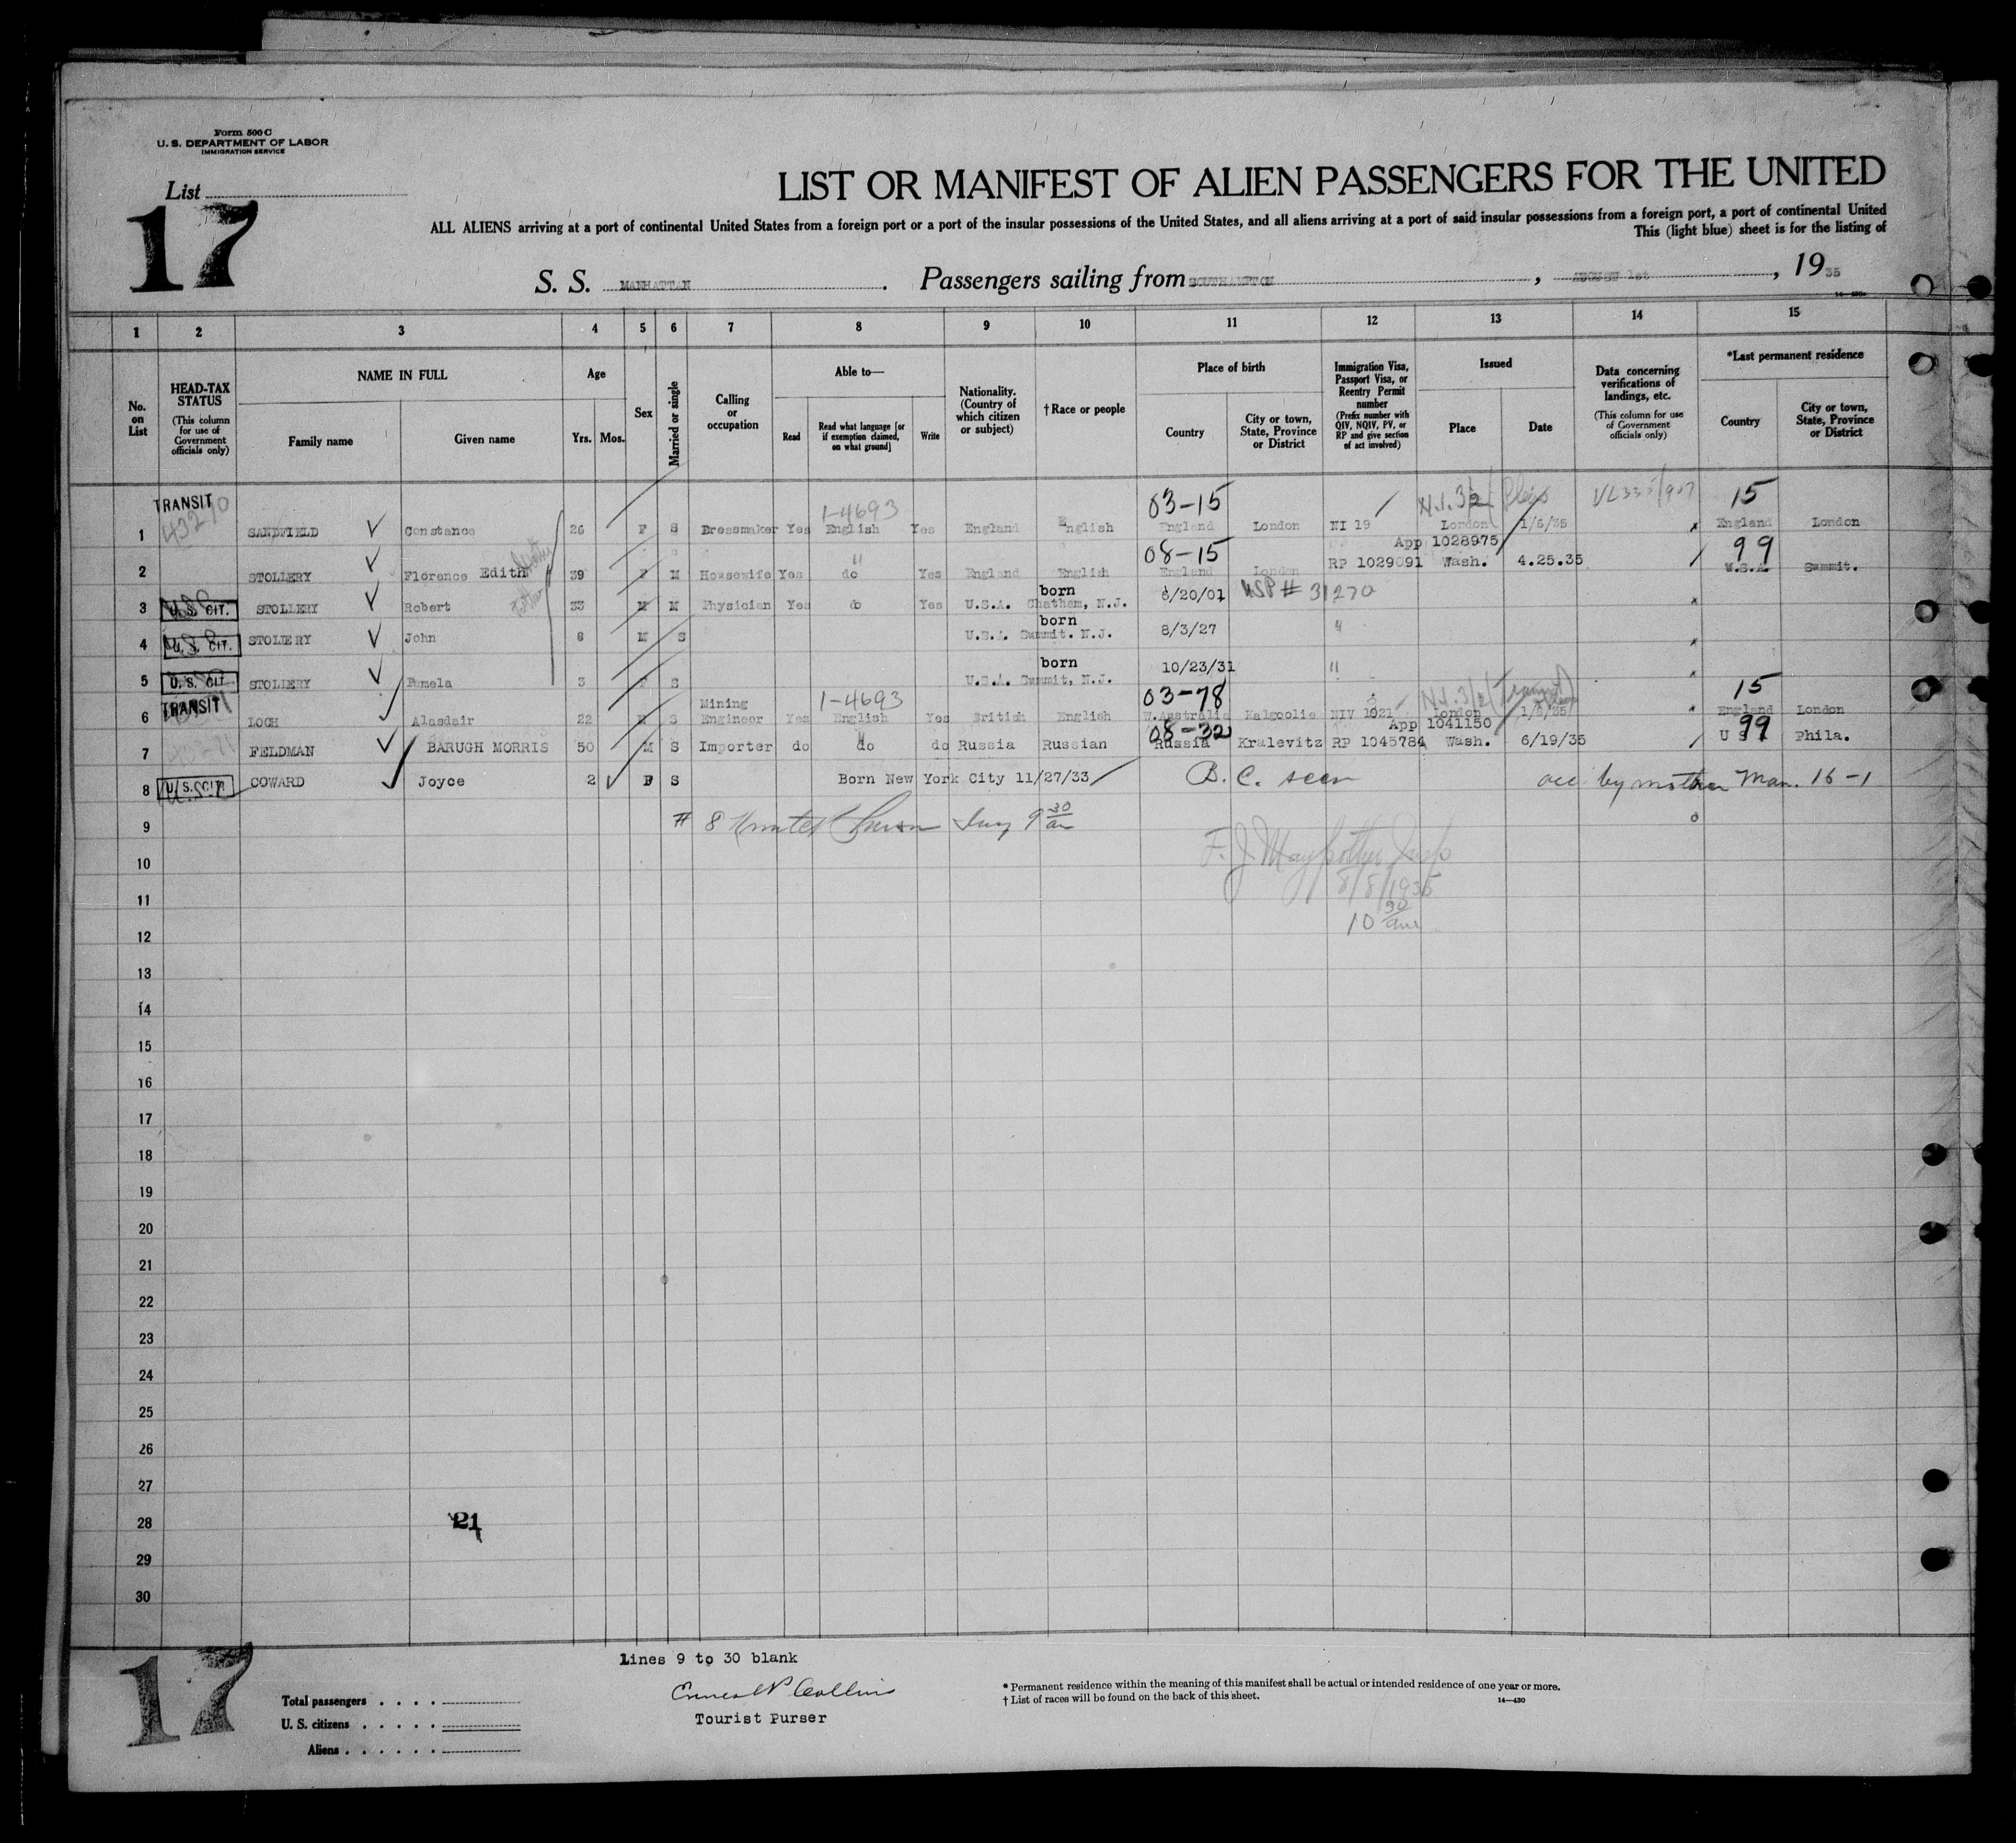 Form 500 C
U. S. DEPARTMENT OF LABOR
IMMIGRATION SERVICE
List
17
LIST OR MANIFEST OF ALIEN PASSENGERS FOR THE UNITED
ALL ALIENS arriving at a port of continental United States from a foreign port or a port of the insular possessions of the United States, and all aliens arriving at a port of said insular possessions from a foreign port, a port of continental United
This (light blue) sheet is for the listing of
S. S. MANHATTAN. Passengers sailing from SOUTHAMPTON, AUGUST 1st, 1935
14—430
1 2 3 4 5 6 7 8 9 10 11 12 13 14 15
No. on List
HEAD-TAX STATUS (This column for use of Government officials only)
NAME IN FULL
Family name
Given name
Age
Yrs. Mos.
Sex
Married or single
Calling or occupation
Able to—
Read
Read what language [or if exemption claimed, on what ground]
Write
Nationality. (Country of which citizen or subject)
† Race or people
Place of birth
Country
City or town, State, Province or District
Immigration Visa, Passport Visa, or Reentry Permit number (Prefix number with QIV, NQIV, PV, or RP and give section of act involved)
Issued
Place
Date
Data concerning verifications of landings, etc. (This column for use of Government officials only)
*Last permanent residence
Country
City or town, State, Province or District
TRANSIT 1-4693 03-15 15
1 SANDFIELD Constance 26 F S Dressmaker Yes English Yes England English England London NI 19 London 1/6/35 England London
App 1028975
08-15 99
2 STOLLERY Florence Edith 39 F M Housewife Yes do Yes England English England London RP 1029091 Wash. 4.25.35 U.S.A. Summit.
3 U.S. CIT. STOLLERY Robert 33 M M Physician Yes do Yes U.S.A. born Chatham, N.J. 6/20/01 USP # 31270
4 U.S. CIT. STOLLERY John 8 M S U.S.A. born Summit. N.J. 8/3/27 "
5 U.S. CIT. STOLLERY Pamela 3 F S U.S.A. born Summit, N.J. 10/23/31 "
TRANSIT 1-4693 03-78 15
6 LOCH Alasdair 22 M S Mining Engineer Yes English Yes British English W.Australia Kalgoolie NIV 1021 London 1/8/35 England London
App 1041150
08-32 99
7 FELDMAN BARUGH MORRIS 50 M S Importer do do do Russia Russian Russia Kralevitz RP 1045784 Wash. 6/19/35 U S A Phila.
8 U.S. CIT. COWARD Joyce 2 F S Born New York City 11/27/33 B. C. seen acc by mother Man. 16-1
9 # 8 9 30 am
10
8/8/1935
11
10 30 am
12
13
14
15
16
17
18
19
20
21
22
23
24
25
26
27
28 21
29
30
17
Lines 9 to 30 blank
Total passengers
U. S. citizens
Aliens
Tourist Purser
* Permanent residence within the meaning of this manifest shall be actual or intended residence of one year or more.
† List of races will be found on the back of this sheet.
14—430